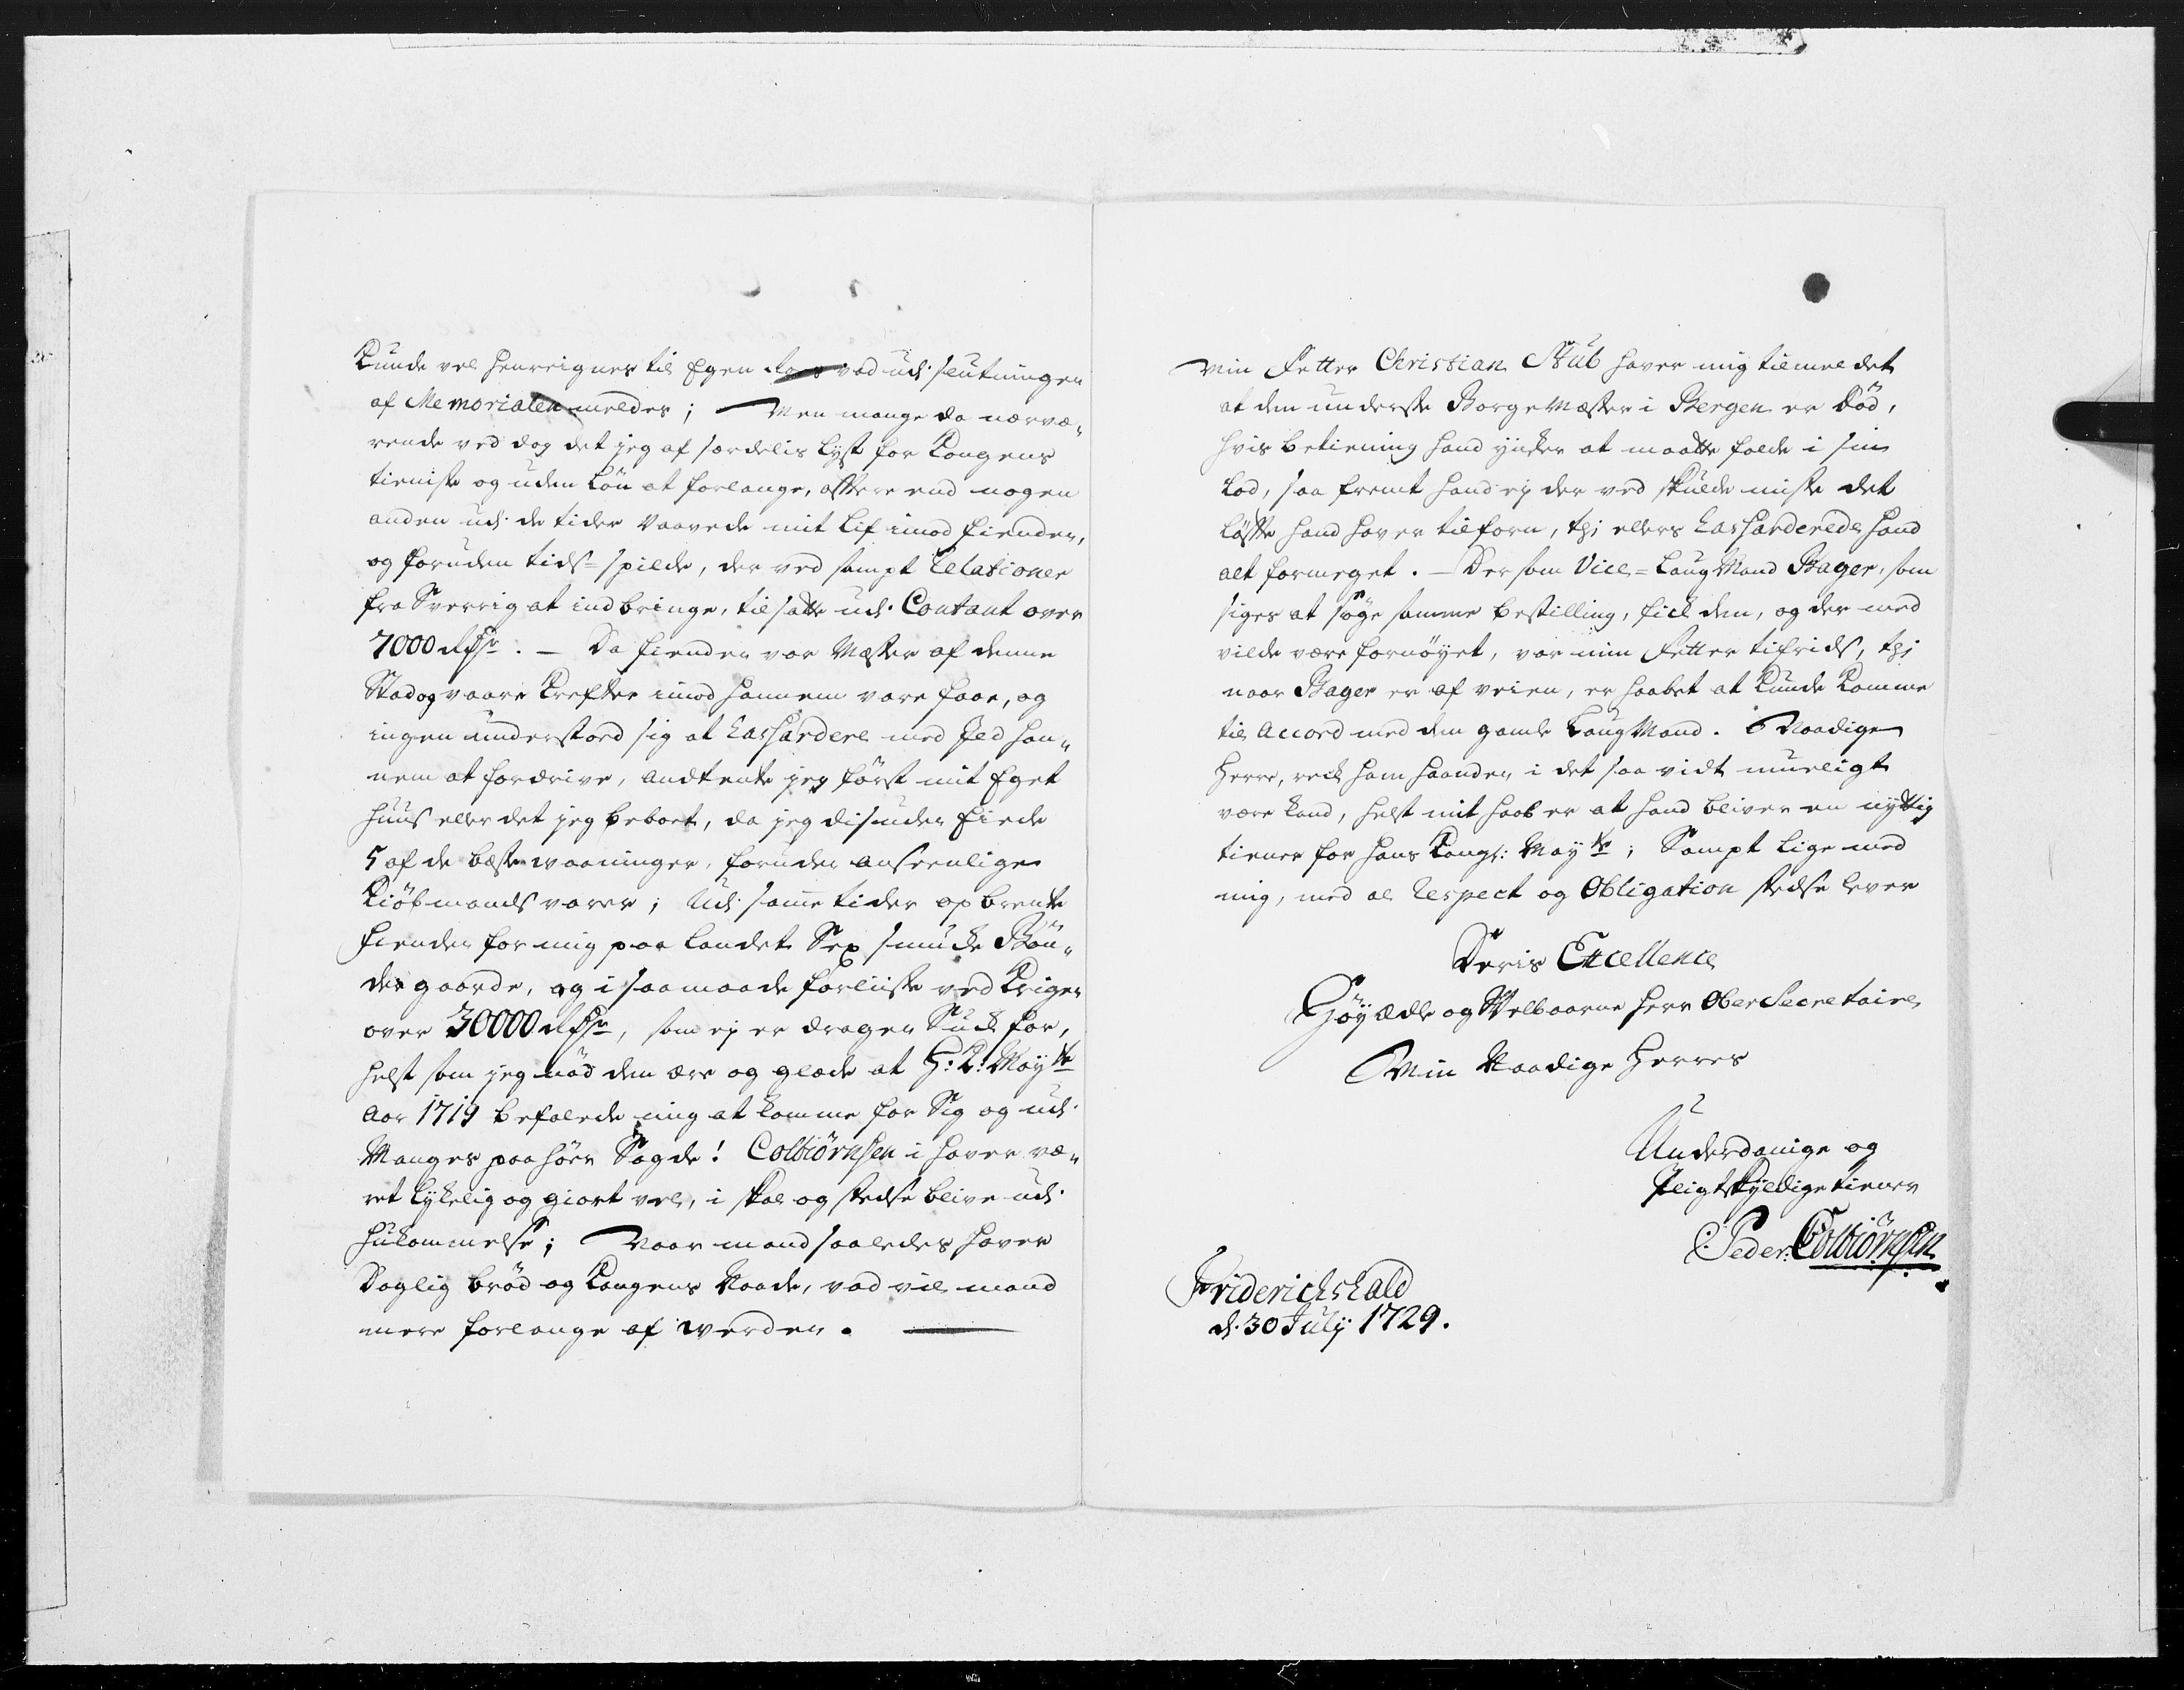 Kunde vel henreignes til Egen Roes vad udi slutningen
af Memorialen meldes; Men mange da nærvæ„
rende ved dog det jeg af særdelis Lyst for Kongens
tieniste og uden Løn at forlange, oftere end nogen
anden udi de tider Vaavede mit Lif imod fienden,
og foruden tids-spilde, der ved sampt Relationer
fra Sverrig at ind bringe, til satte udi Contant over
7000 Rdr. — Da fienden var Mæster af denne
Stad og vaare Krefter imod hannem vare faae, og
ingen understoed sig at Hasardere med Jld han„
nem at fordrive, andtente jeg först mit Eget
huus eller det jeg beboet, da jeg disuden Eiede
5 af de bæste vaaninger, foruden anseenlige
Kiöbmands varer; Udi samme tider opbrente
fienden for mig paa Landet Sex smucke Bön„
der gaarde, og i saamaade forliiste ved Krigen
over 30000 Rdr, som ej er dragen Suck for,
helst som jeg nöd den ære og glæde at H: K: May.tt
Aar 1719 befalede mig at komme for Sig og udi
Manges paahör Sagde! Colbiörnsen i haver væ„
ret Lykelig og giort vel, i skal og stedse blive udi
hukommelse; Naar mand saaledes haver
Daglig bröd og Kongens Naade, vad vil mand
mere forlange af Verden.
Min Fetter Christian Stub haver mig tilmeldet
at den underste BorgeMæster i Bergen er Död,
hvis betiening hand ynsker at maatte falde i sin
Lod, saa fremt hand ej der ved skulde miste det
Löfte hand haver tilforn, thi ellers Hasarderede hand
alt formeget. — Der som Vice-LaugMand Bager, som
siges at söge samme bestilling, fick den, og der med
vilde være fornöyet, var min Fetter tifrids, thi
naar Bager er af veien, er haabet at Kunde komme
til Accord med den gamle LaugMand. Naadige
Herre, reck ham haanden i det saa vidt mueligt
være kand, helst mit haab er at hand bliver en nyttig
tiener for hans Kongl: May.tt; Sampt lige med
mig, med al Respect og Obligation stedse lever
Deris Excellence
Höyædle og Welbaarne Herr Ober Secretaire
Min Naadige Herres
Underdanige og
Pligtskyldige tiener
Peder Colbiörnsen
Friderichshald
d. 30 July 1729.